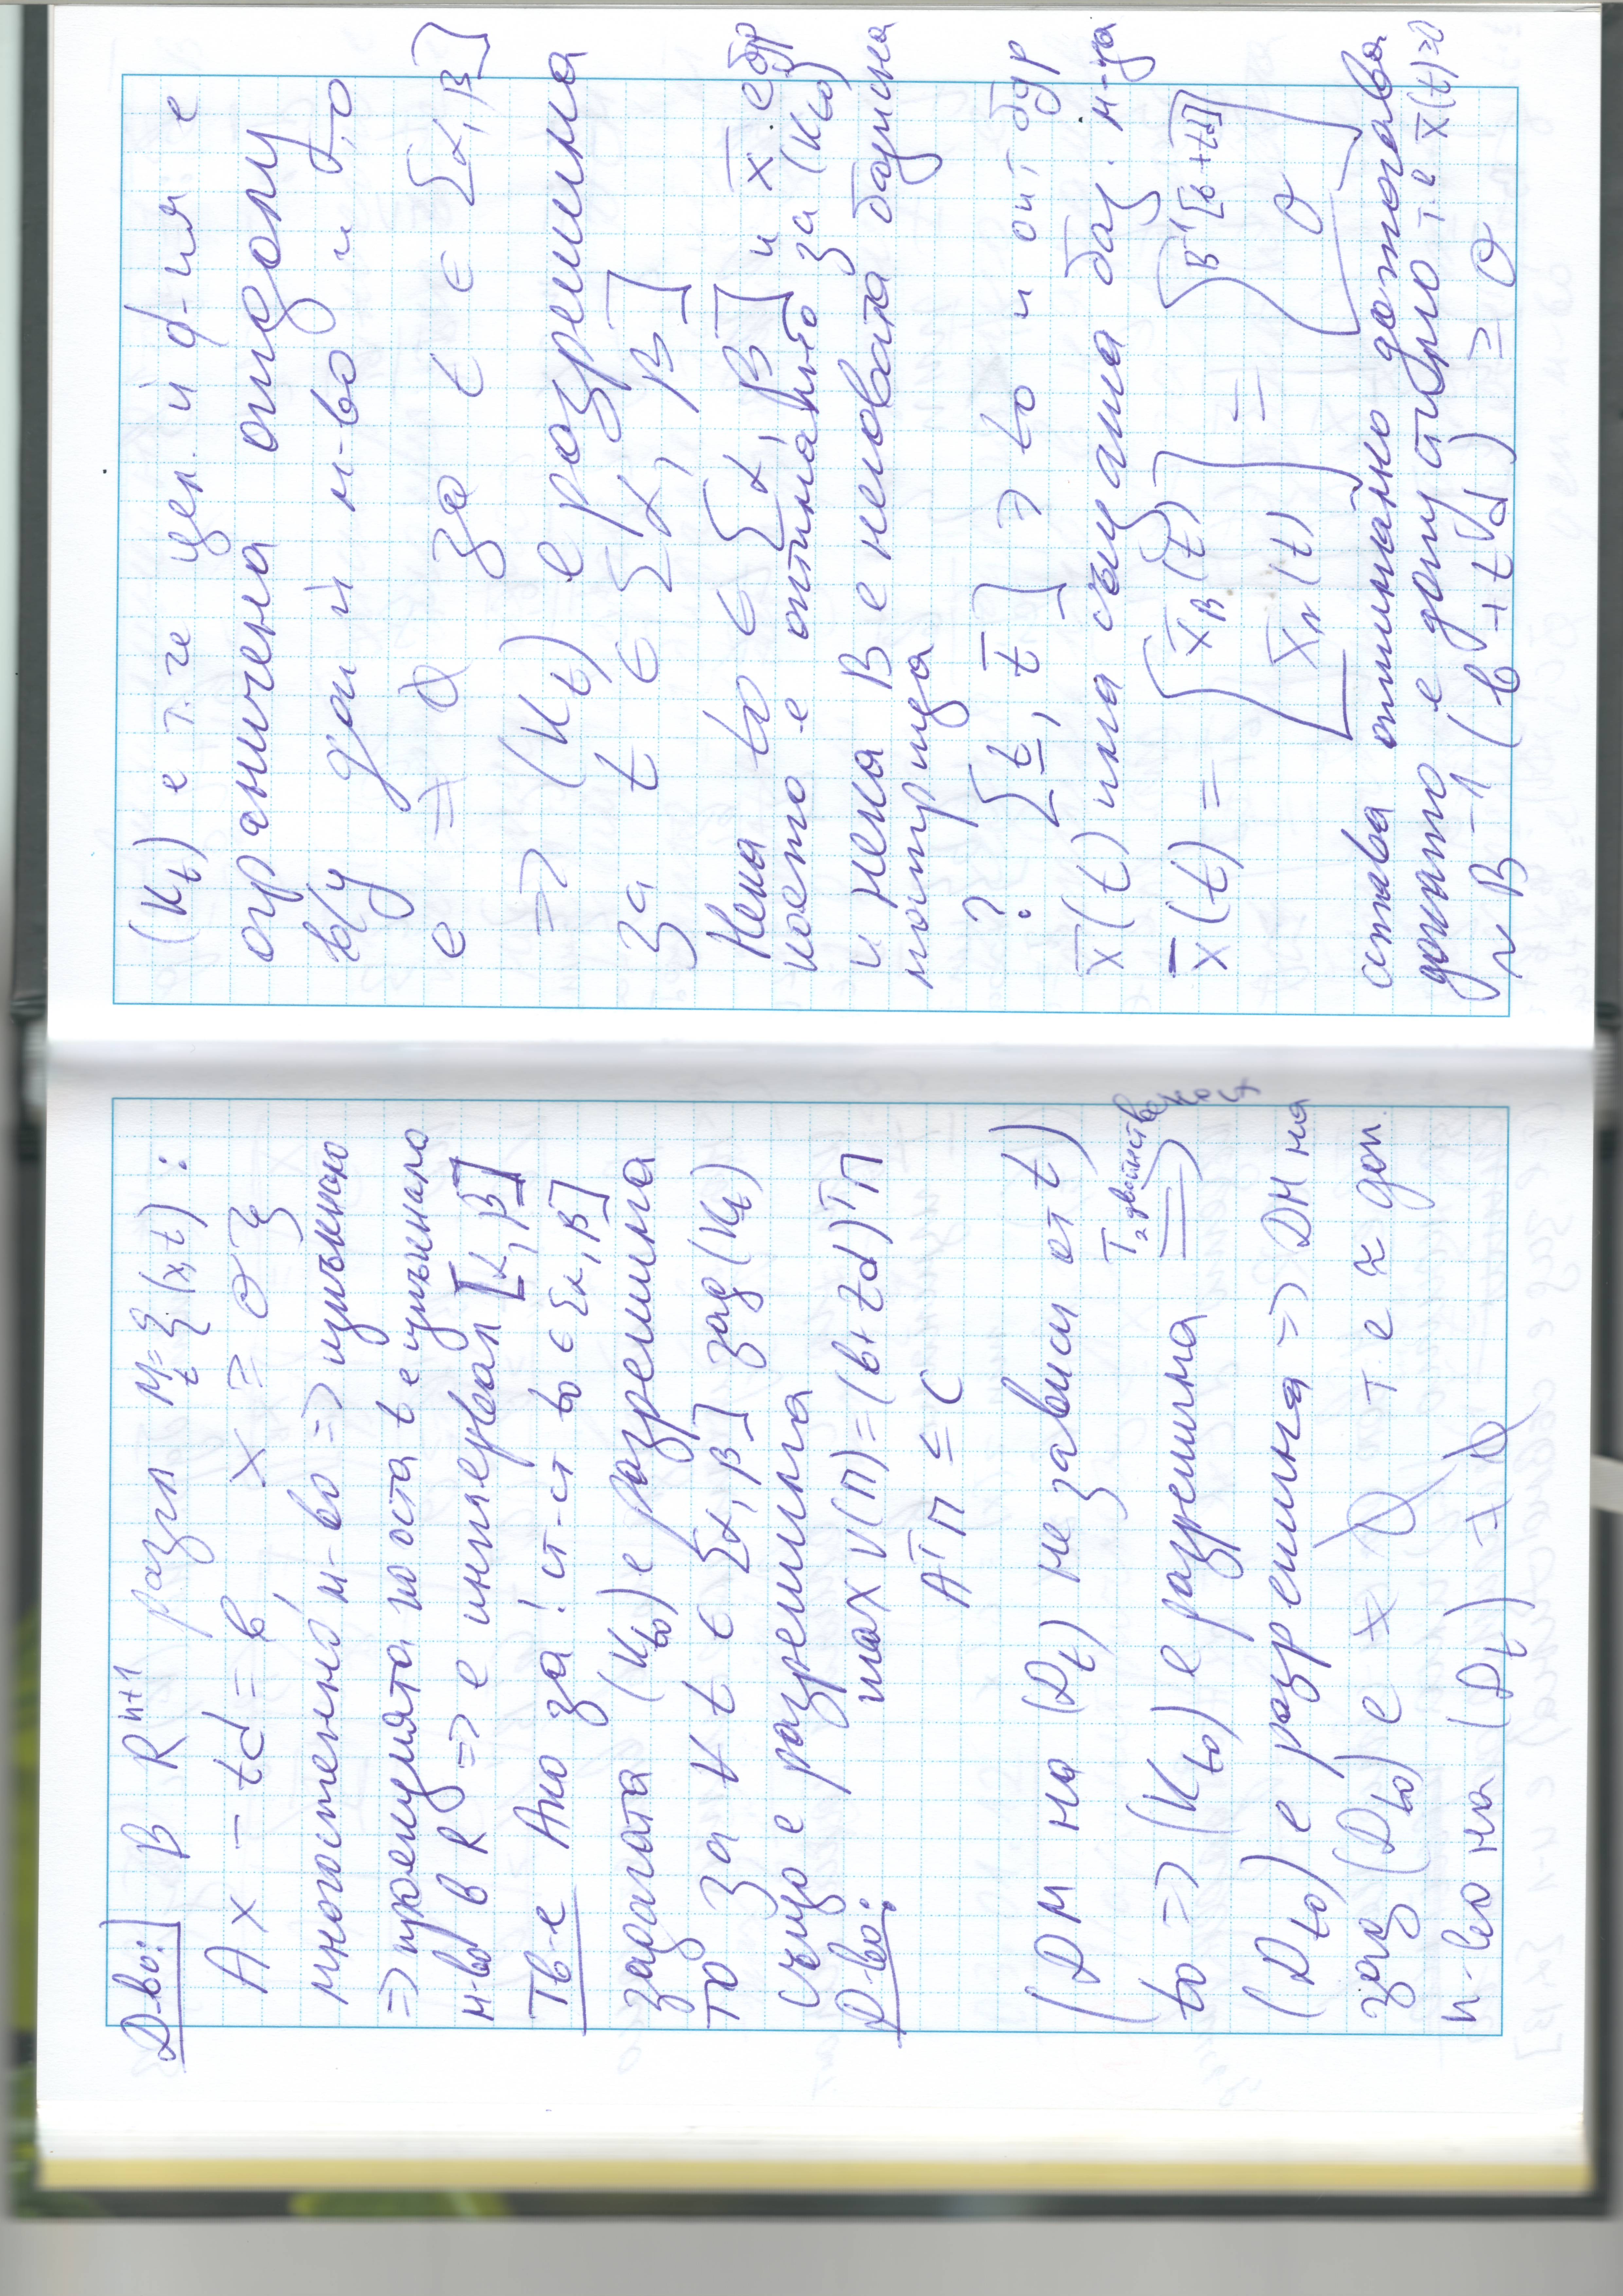 Д-во: В R^{n+1} разгл M_t = {(x,t) :
Ax - td = b x ≥ 0}
многостенно м-во => изпъкнало
=> проекцията по оста t е изпъкнало
м-во в R => е интервал [α, β]
Тв-е Ако за ! ст-ст t0 ∈ [α, β]
задачата (K_{t0}) е разрешима
то за ∀ t ∈ [α, β] зад (K_t)
също е разрешима
Д-во: max v(π) = (b + td)^T π
A^T π ≤ c
(ДМ на (D_t) не зависи от t)
t0 => (K_{t0}) е разрешима Т за двойственост =>
(D_{t0}) е разрешима => ДМ на
зад (D_{t0}) е ≠ ∅ т.е ≈ доп
м-во на (D_t) ≠ ∅
(K_t) е т.че цел.й ф-ия е
ограничена отдолу
в/у доп й м-во и то
е ≠ ∅ за t ∈ [α, β]
=> (K_t) е разрешима
за t ∈ [α, β]
Нека t0 ∈ [α, β] и x̄ е бдр
което е оптимално за (K_{t0})
и нека B е неговата базисна
матрица
? [t̲, t̄] ∋ t0 и опт бдр
x̄(t) има същата баз. м-ца
x̄(t) = [x̄_B(t) x̄_n(t)] = [B^{-1}[b+td] 0]
остава оптимално дотогава
докато е допустимо т.е x̄(t)≥0
~ B^{-1}(b + td) ≥ 0